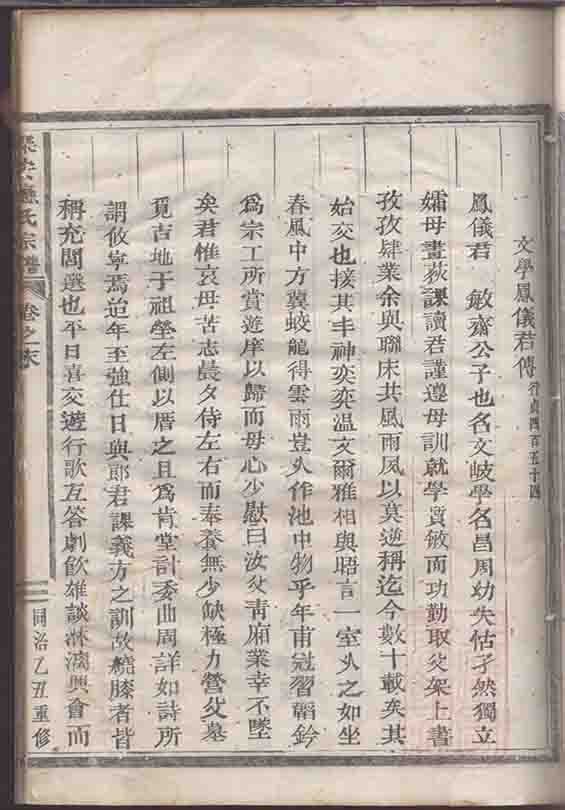 文學鳳儀君傳 行貞四百五十四
鳳儀君 敏齋公子也名文岐學名昌周幼失怙孑然獨立
孀母畫荻課讀君謹遵母訓就學質敏而功勤取父架上書
孜孜肄業余與聯床共風雨夙以莫逆稱迄今數十載矣其
始交也接其丰神奕奕温文爾雅相與晤言一室久之如坐
春風中方冀蛟龍得雲雨豈久作池中物乎年甫冠習韜鈐
為宗工所賞遊庠以歸而母心少慰曰汝父青廂業幸不墜
矣君惟哀母苦志晨夕侍左右而奉養無少缺極力營父墓
覓吉地于祖塋左側以厝之且為肯堂計委曲周詳如詩所
謂攸寧焉迨年至強仕日與郎君課義方之訓故繞膝者皆
稱充閭選也平日喜交遊行歌互答劇飲雄談淋漓興會而
氏宗譜 卷之末
同治乙丑重修